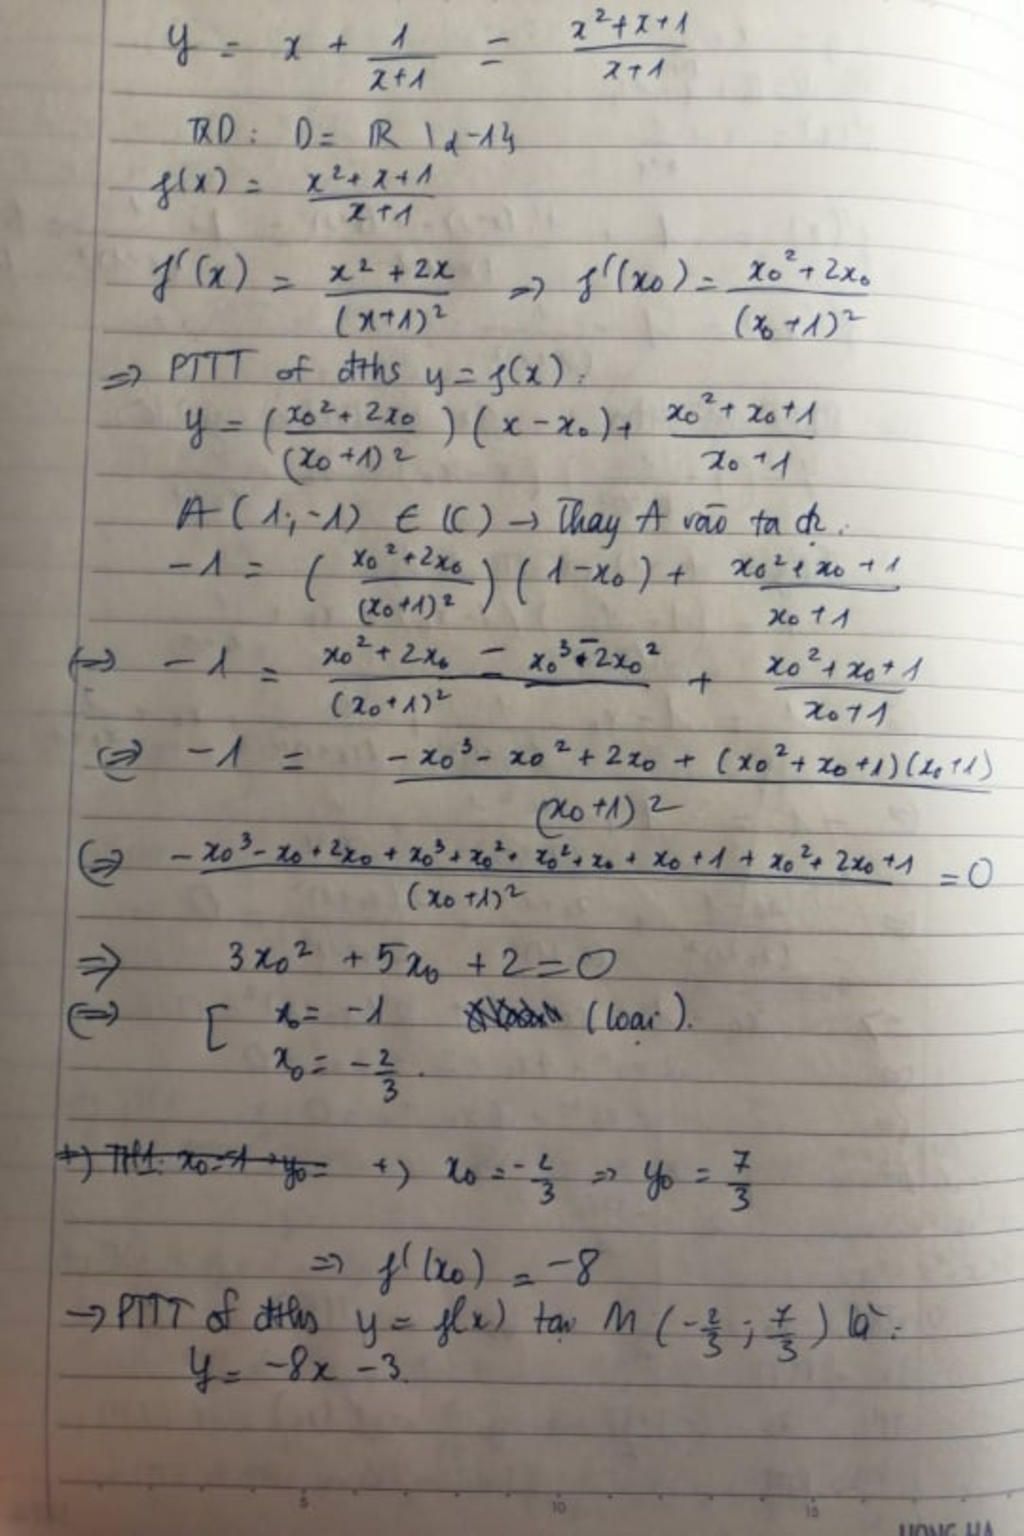 y = x + 1/(x+1) = (x²+x+1)/(x+1)
TXD: D = ℝ \ {-1}
f(x) = (x²+x+1)/(x+1)
f'(x) = (x²+2x)/(x+1)² => f'(x₀) = (x₀²+2x₀)/(x₀+1)²
=> PTTT of đths y = f(x):
y = ((x₀²+2x₀)/(x₀+1)²)(x-x₀) + (x₀²+x₀+1)/(x₀+1)
A(1;-1) ∈ (C) → Thay A vào ta đc:
-1 = ((x₀²+2x₀)/(x₀+1)²)(1-x₀) + (x₀²+x₀+1)/(x₀+1)
<=> -1 = (x₀²+2x₀-x₀³-2x₀²)/(x₀+1)² + (x₀²+x₀+1)/(x₀+1)
<=> -1 = (-x₀³-x₀²+2x₀+(x₀²+x₀+1)(x₀+1))/(x₀+1)²
<=> (-x₀³-x₀+2x₀+x₀³+x₀²+x₀²+x₀+x₀+1+x₀²+2x₀+1)/(x₀+1)² = 0
=> 3x₀²+5x₀+2=0
<=> [ x₀ = -1 (loại).
x₀ = -2/3.
+) TH1: x₀=-1 → y₀= +) x₀ = -2/3 => y₀ = 7/3
=> f'(x₀) = -8
→ PTTT of đths y = f(x) tại M(-2/3; 7/3) là:
y = -8x - 3.
5 10 15
HONG HA